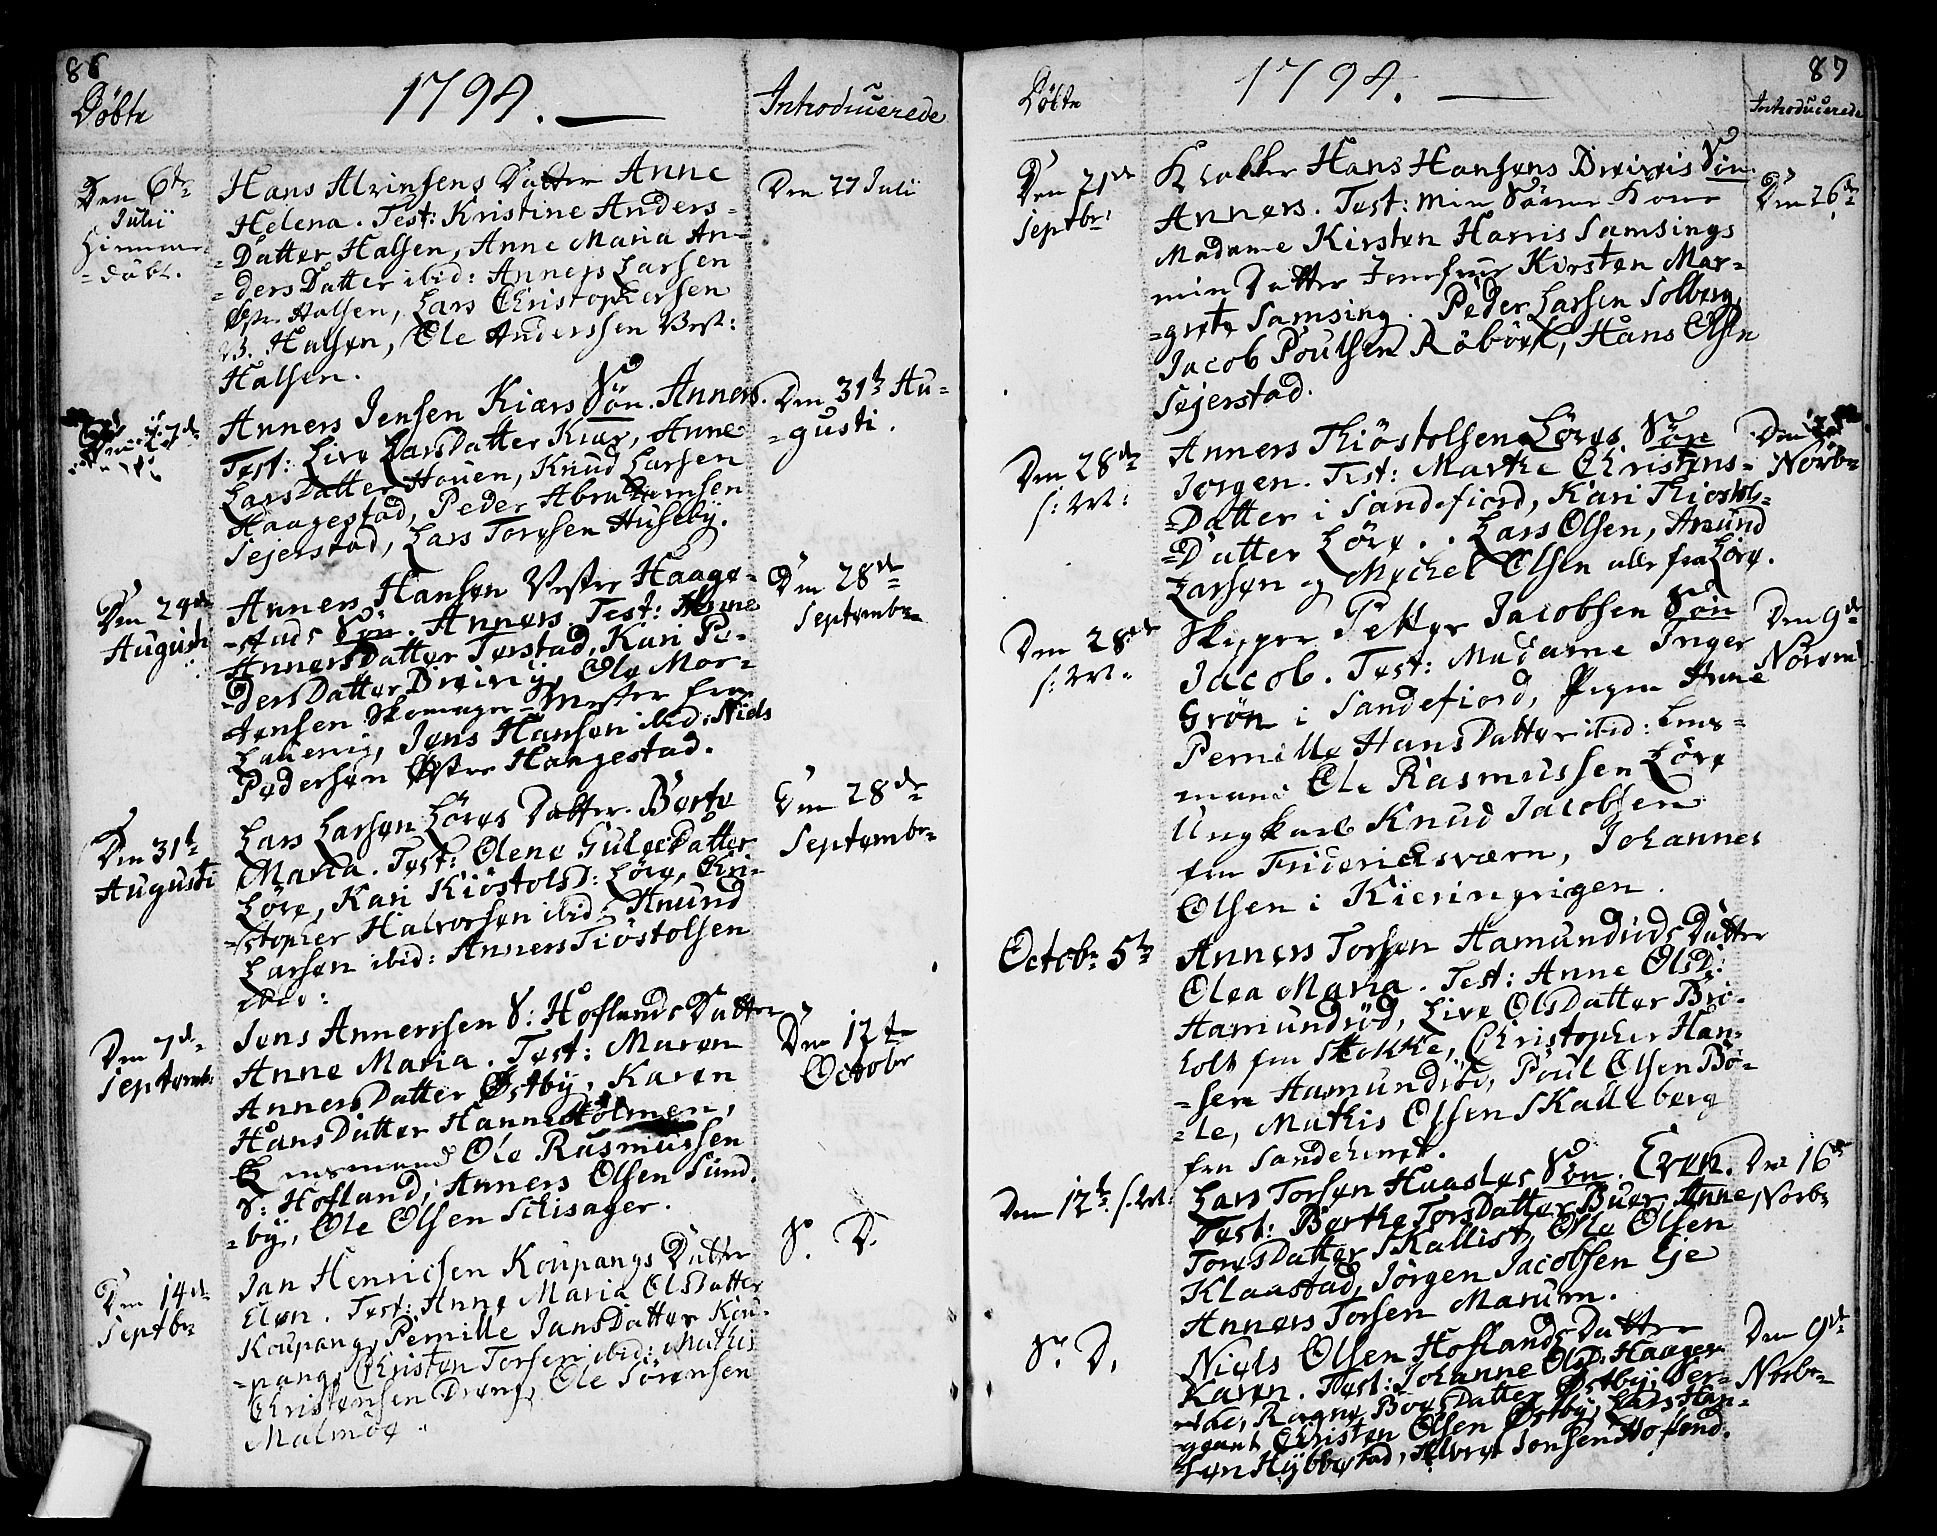 86
Döbte
1794.
Introducerede
Den 6te
Julii
Hiemme
-döbt.
Hans Alvinsens Datter Anne
Helena. Test: Kristine Anders-
-Datter Halsen, Anne Maria An-
-dersDatter ibid: Anners Larsen
Østre Halsen, Lars Christophersen
V. Halsen, Ole Anderssen Vest:
Halsen.
Den 27 Julii
Anners Jensen Kiærs Sön. Anners.
Test: Live LarsDatter Kiær, Anne
LarsDatter Houen, Knud Larsen
Haagestad, Peder Abrahamsen
Sejerstad, Lars Toresen Huseby.
Den 31te Au-
-gusti.
Den 24de
Augusti
Anners Hansen Vestre Haage-
-stads Sön. Anners. Test: Anne
AnnersDatter Torstad, Kari Pe-
-dersDatter Dreivig, Ole Mor-
-tensen Skomager-Mester fra
Laurvig, Jens Hansen ibid: Niels
Pedersen Østre Haagestad.
Den 28de
Septembr
Den 31te
Augusti
Lars Larsen Löves Datter. Berte
Maria. Test: Olene GuleesDatter
Löve, Kari KiöstolsD: Löve, Chri-
-stopher Halvorsen ibid: Anund
Larsen ibid: Anners Tiöstolsen
ibid:
Den 28de
Septembr
Den 7de
Septembr
Jens Annerssen S: Hoflands Datter
Anne Maria. Test: Maren
AnnersDatter Østby, Karen
HansDatter Hanne Holmen,
Ensmand Ole Rasmussen
S: Hofland, Anners Olsen Sund-
-by, Ole Olsen Schisager.
Den 12te
Octobr
Den 14de
Septbr
Jan Henricsen Koupangs Datter
Elen. Test: Anne Maria OlsDatter
Koupang, Pernille JansDatter Kou-
-pang, Christen Torsen ibid: Mathis
Christensen Dreng, Ole Sörensen
Malmöe.
S. D.
87
Döbte
1794.
Introducerede
Den 21de
Septbr:
Klokker Hans Hansens Dreivis Sön.
Anners. Test: min Sönne Kone
Madame Kirsten Harris Samsings
min Datter Jomfrue Kirsten Mar-
-grete Samsing. Peder Larsen Solberg,
Jacob Poulsen Röbörk, Hans Olsen
Sejerstad.
Den 26de
Den 28de
s: M:
Anners Thiöstolsen Löves Sön
Jorgen. Test: Marthe Christens-
-Datter i Sandefiord, Kari Thiostols-
-Datter Löve. Lars Olsen, Anund
Larsen og Mechel Olsen alle fra Löve.
Den
Novbr
Den 28de
s: M.
Skipper Petter Jacobsen Sön
Jacob. Test: Madame Inger
Grön i Sandefiord, Pigen Anne
Pernille HansDatter ibid: Ens-
mand Ole Rasmussen Löve
Ungkarl Knud Jacobsen
fra Fridericksværn, Johannes
Olsen i Kieringvigen.
Den 9de
Novem
Octobr 5te
Anners Torsen Hamunduds Datter
Olea Maria. Test: Anne OlsD:
Hamundröd, Live OlsDatter Bru-
holt fra Stokke, Christopher Han-
-sen Hamundröd, Poul Olsen Bö-
-le, Mathis Olsen Skalleberg
fra Sandeherret.
Den 12te s. M:
Lars Torsen Haasles Sön. Even.
Test: Berthe TorsDatter Buer, Anne
TorsDatter Skallist, Ole Olsen
Klaastad, Jörgen Jacobsen Eje
Anners Torsen Marum.
Den 16de
Novbr
S. D.
Niels Olsen Hoflands Datter
Karen. Test: Johanne OlsD: Haage-
Ragne BoesDatter Østby, Ser-
geant Christen Olsen Østby, Lars Han-
-sen Hybbestad, Jensen Hofland.
Den 9de
Novbr